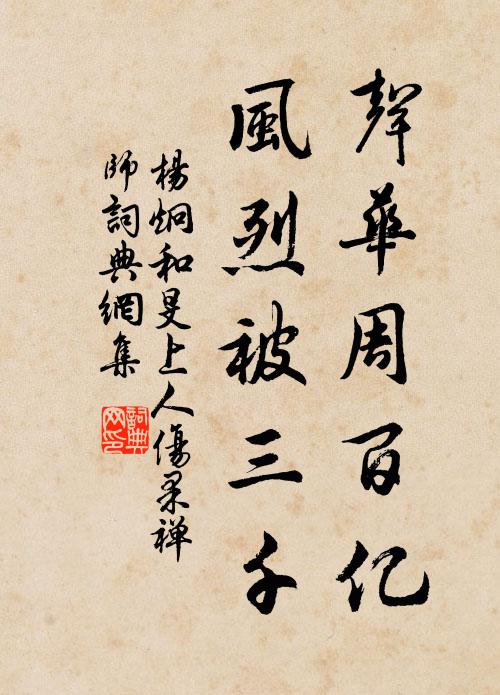 聲華周百亿
風烈被三千
楊炯和旻上人傷果禅
師詞典網集
詞典网印